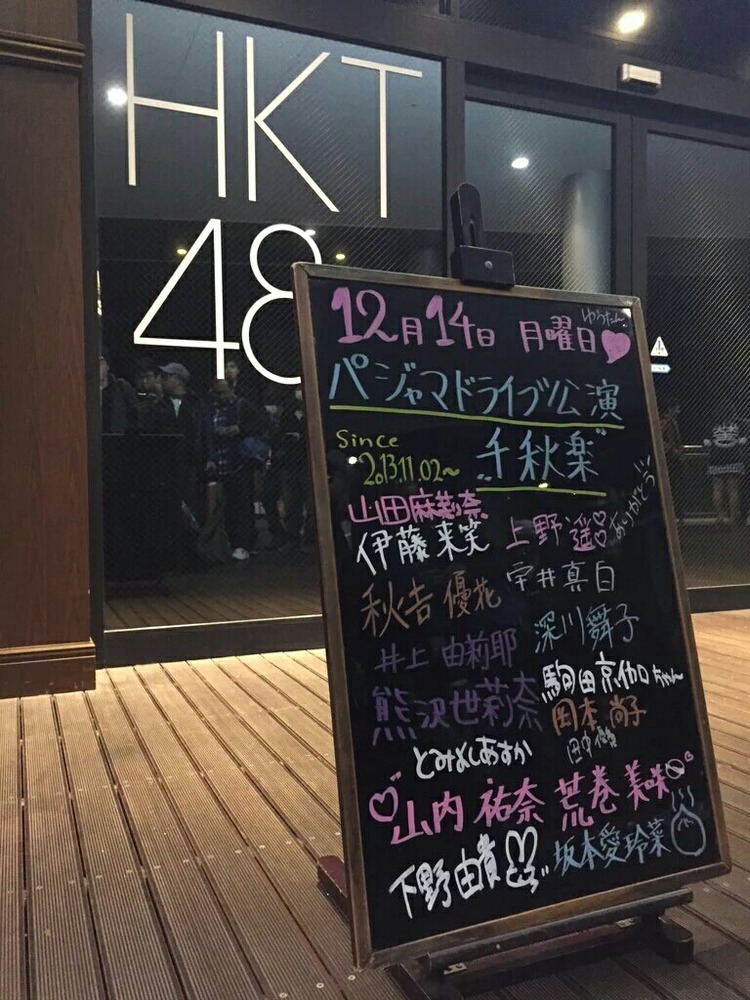 HKT
48
12月14日 月曜日 ゆうたん
パジャマドライブ公演
Since
2013.11.02~
千秋楽
ありがとう
山田麻莉奈
伊藤来笑
上野遥
秋吉優花
宇井真白
井上由莉耶
深川舞子
熊沢世莉奈
駒田京伽ちゃん
岡本尚子
とみよしあすか
山内祐奈
荒巻美咲
下野由貴
坂本愛玲菜